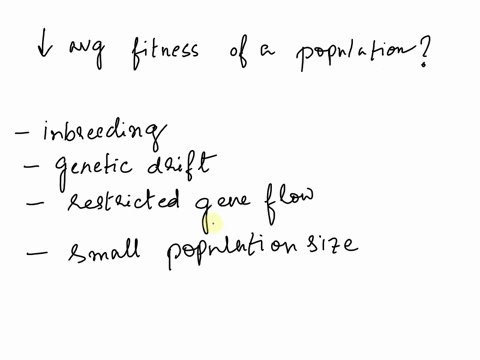 ↓ avg fitness of a population?
- inbreeding
- genetic drift
- restricted gene flow
- small population size